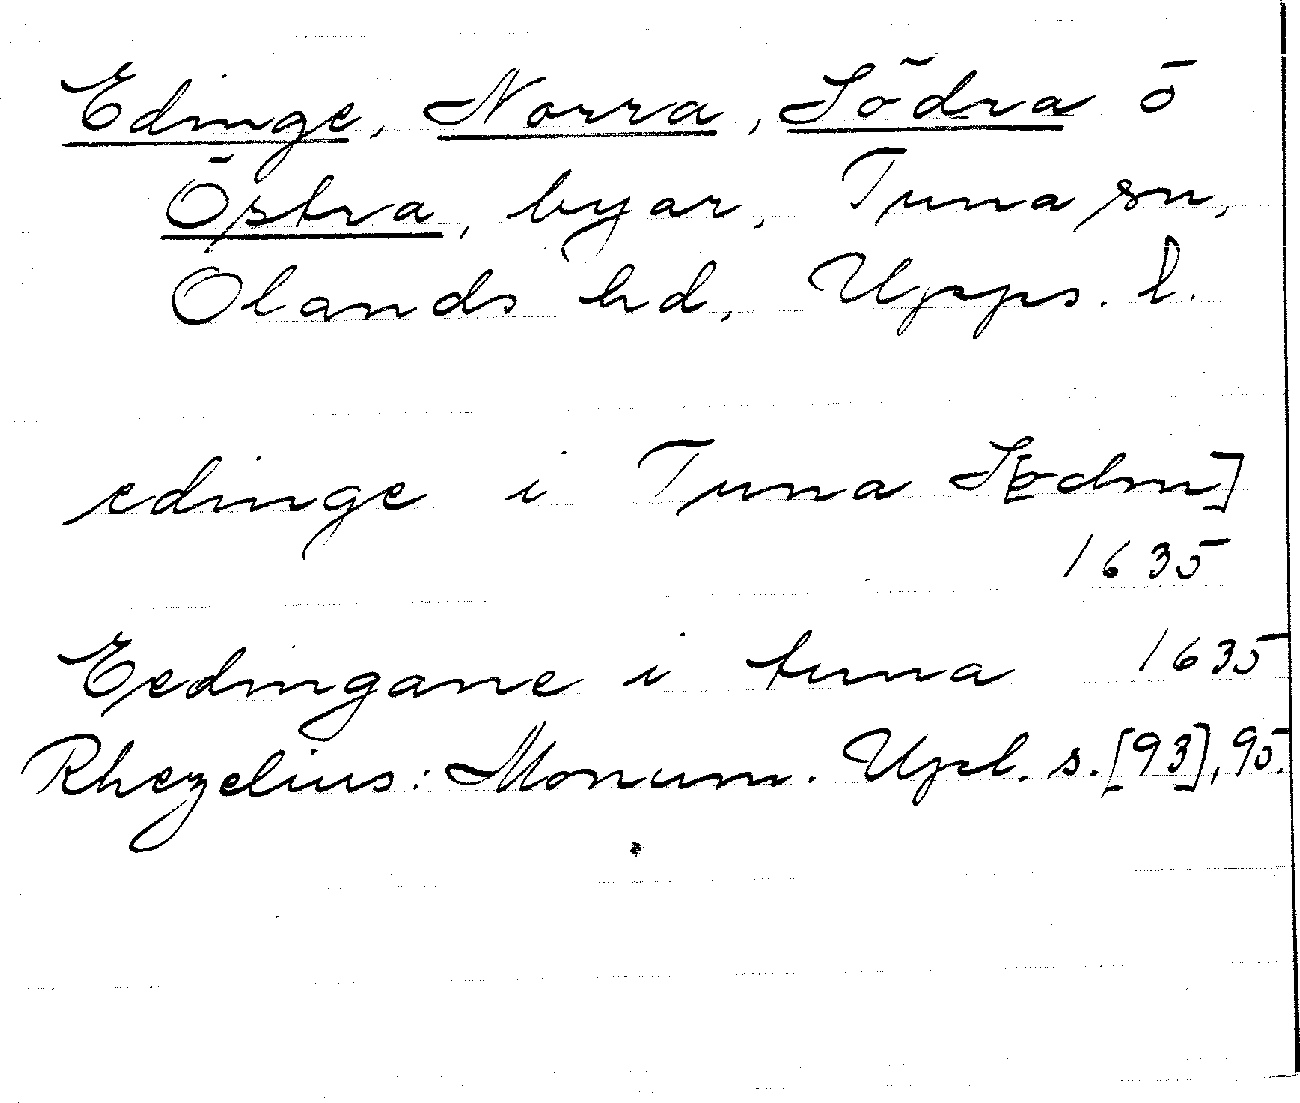 Edinge, Norra, Södra o
Östra, byar, Tuna sn,
Olands hd, Upps. l.
edinge i Tuna S[odm]
1635
Eedingane i tuna 1635
Rhezelius: Monum. Upl. s. [93], 95.